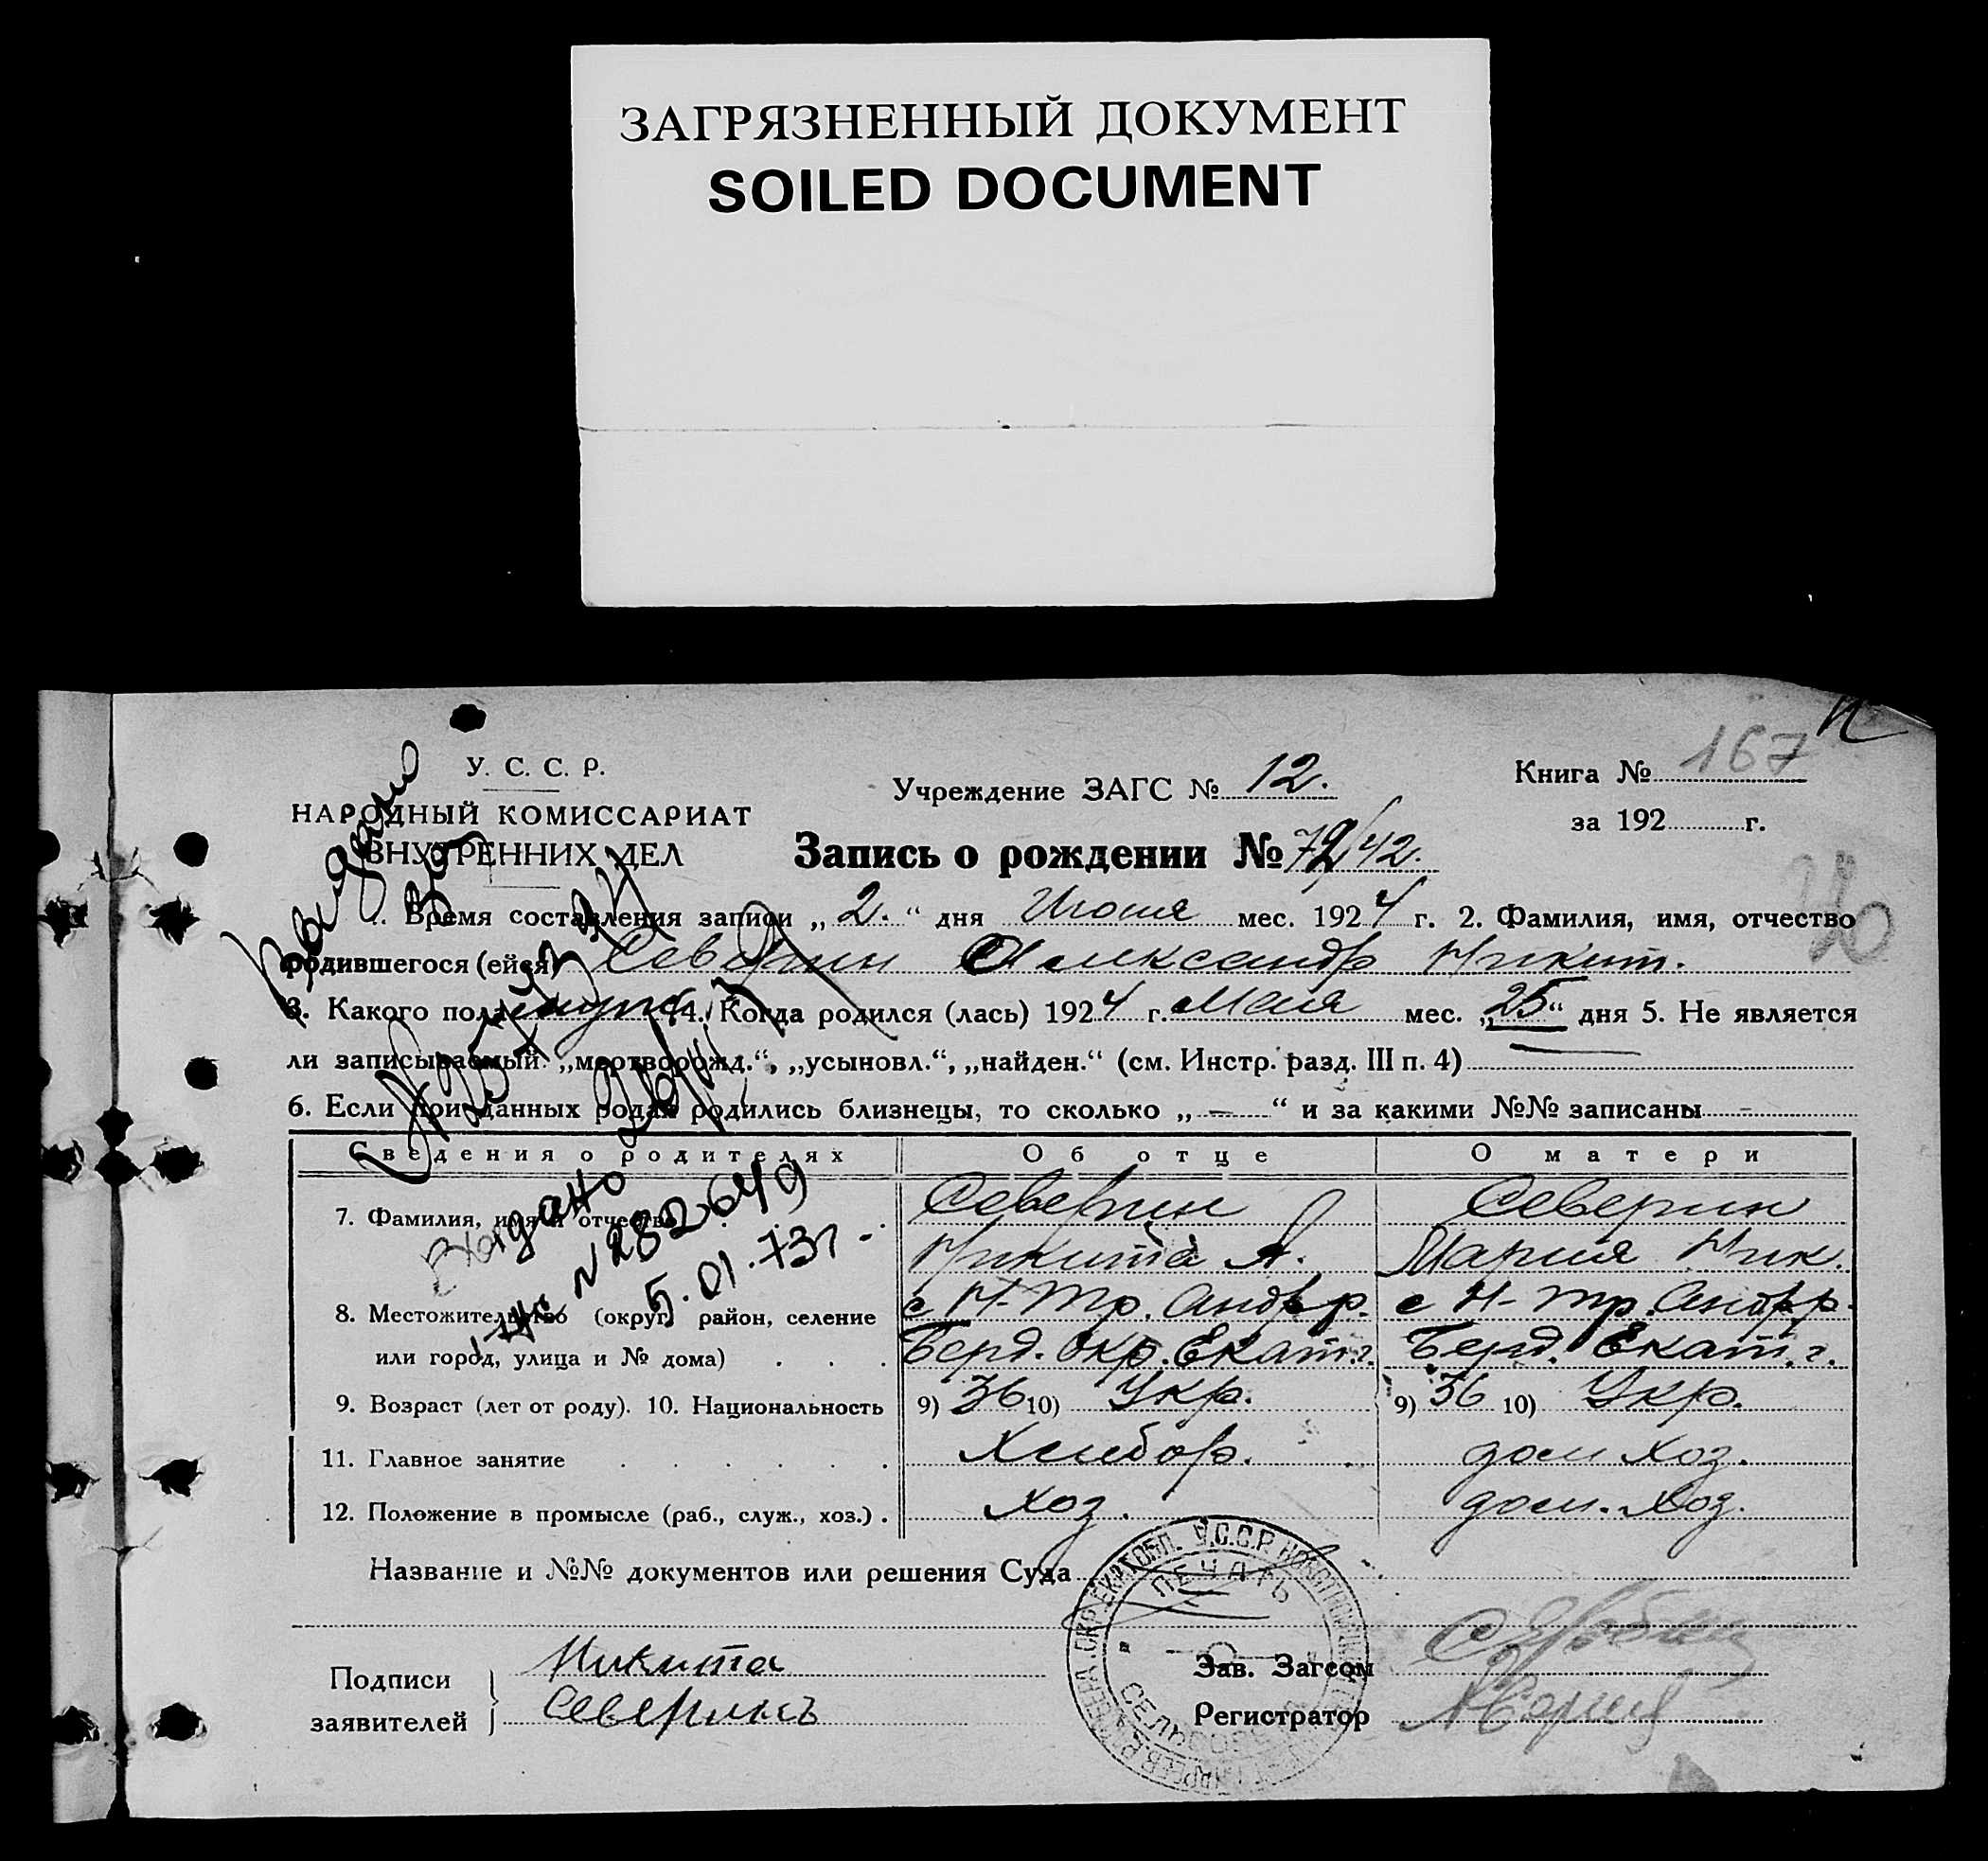 ЗАГРЯЗНЕННЫЙ ДОКУМЕНТ
SOILED DOCUMENT
У. С. С. Р.
НАРОДНЫЙ КОМИССАРИАТ
ВНУТРЕННИХ ДЕЛ
Учреждение ЗАГС № 12.
Книга № 167
за 192 г.
Запись о рождении № 72/42.
1. Время составления записи „ 2. “ дня Июня мес. 1924 г. 2. Фамилия, имя, отчество
родившегося (ейся) Северин Александр Никит.
3. Какого пола муж. 4. Когда родился (лась) 1924 г. Мая мес. „25“ дня 5. Не является
ли записываемый „мертворожд.“, „усыновл.“, „найден.“ (см. Инстр. разд. III п. 4)
6. Если при данных родах родились близнецы, то сколько „ — “ и за какими №№ записаны -
Сведения о родителях Об отце О матери
7. Фамилия, имя и отчество Северин Северин
Никита А. Мария Ник.
8. Местожительство (округ, район, селение с Н-Тр. Андр р. с Н-Тр. Андр р.
или город, улица и № дома) Берд. Окр. Екат. г. Берд. Екат. г.
9. Возраст (лет от роду). 10. Национальность 9) 36 10) Укр. 9) 36 10) Укр.
11. Главное занятие Хлебор. дом хоз.
12. Положение в промысле (раб., служ., хоз.) . хоз. дом. хоз.
Выдано
№ 282649
5.01.73г.
Название и №№ документов или решения Суда
Подписи заявителей
Никита
Северинъ
Зав. Загсом
Регистратор
ПЕЧАТЬ
СЕЛЬСОВЕТА